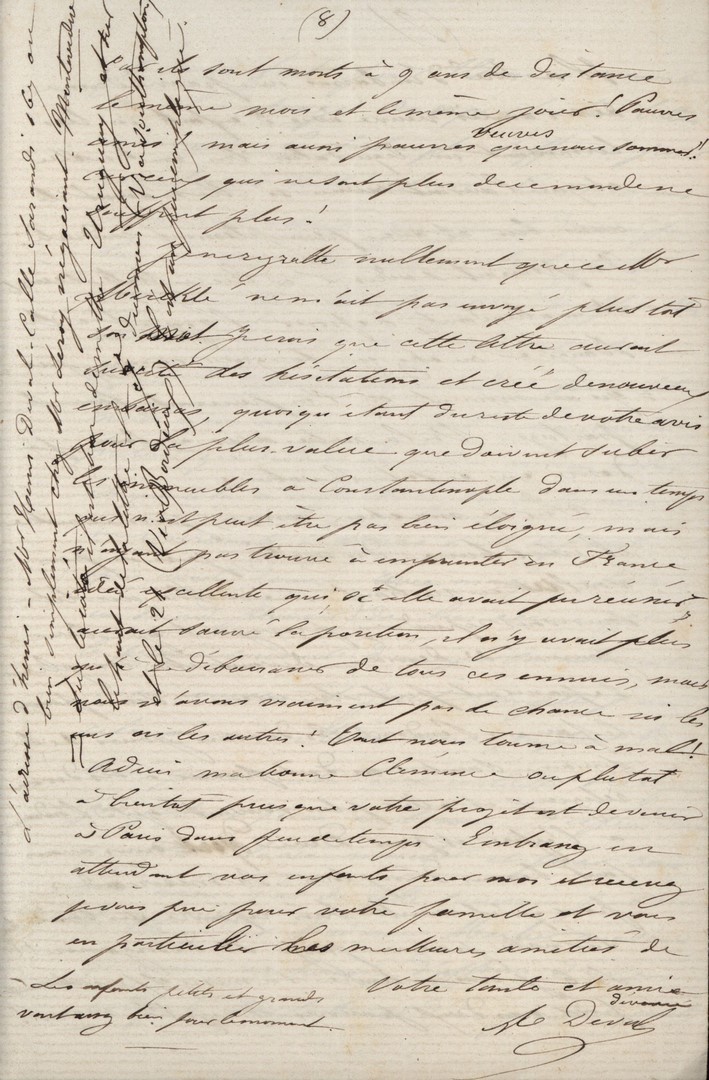 (8)
ils sont morts à 9 ans de distance
le même mois et le même jour! Pauvres
amis, mais aussi pauvres veuves que nous sommes!!
ceux qui ne sont plus de ce monde ne
souffrent plus!
Je ne regrette nullement que ce Mr
ne m'ait pas envoyé plus tôt
son Je crois que cette lettre aurait
suscité des hésitations et créé de nouveaux
embarras, quoiqu'étant du reste de votre avis
pour la plus-value que doivent subir
les immeubles à Constantinople dans un temps
qui n'est peut être pas bien éloigné, mais
n'ayant pas trouvé à emprunter en France
idée excellente qui si elle avait pu réussir
aurait sauvé la position, il n'y avait plus
qu'à se débarrasser de tous ces ennuis, mais
nous n'avons vraiment pas de chance ni les
uns ni les autres! Tout nous tourne à mal!
Adieu ma bonne Clémence ou plutôt
à bientôt puisque votre projet est de venir
à Paris dans peu de temps. Embrassez en
attendant vos enfants pour moi et recevez
je vous prie pour votre famille et vous
en particulier les meilleures amitiés de
Votre tante et amie
dévouée
Deval
- Les enfants petits et grands
vont assez bien pour le moment.
L'adresse d'Henri - Mr Henri Deval - Calle Sarandi 169 ou
bien simplement chez Mr Leroy négociant. Montevideo
Uruguay
et le 21 (via Bordeaux)